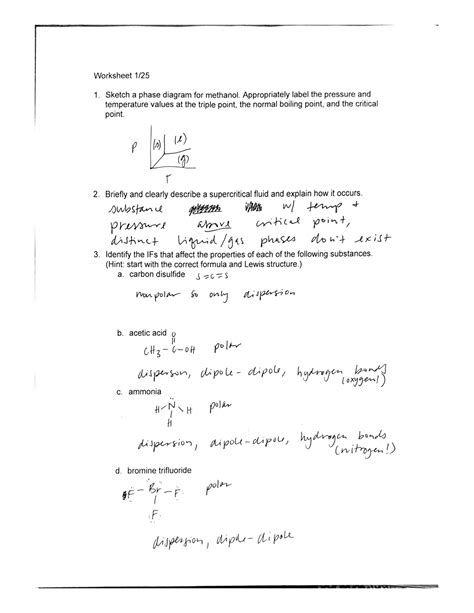 Worksheet 1/25
1. Sketch a phase diagram for methanol. Appropriately label the pressure and
temperature values at the triple point, the normal boiling point, and the critical
point.
P (s) (l)
(g)
T
2. Briefly and clearly describe a supercritical fluid and explain how it occurs.
substance w/ temp +
pressure above critical point,
distinct liquid/gas phases don't exist
3. Identify the IFs that affect the properties of each of the following substances.
(Hint: start with the correct formula and Lewis structure.)
a. carbon disulfide S=C=S
nonpolar so only dispersion
b. acetic acid O
CH3-C-OH polar
disperson, dipole-dipole, hydrogen bonds
(oxygen!)
c. ammonia
H-N-H polar
H
dispersion, dipole-dipole, hydrogen bonds
(nitrogen!)
d. bromine trifluoride
F-Br-F polar
F
dispersion, diple-dipole